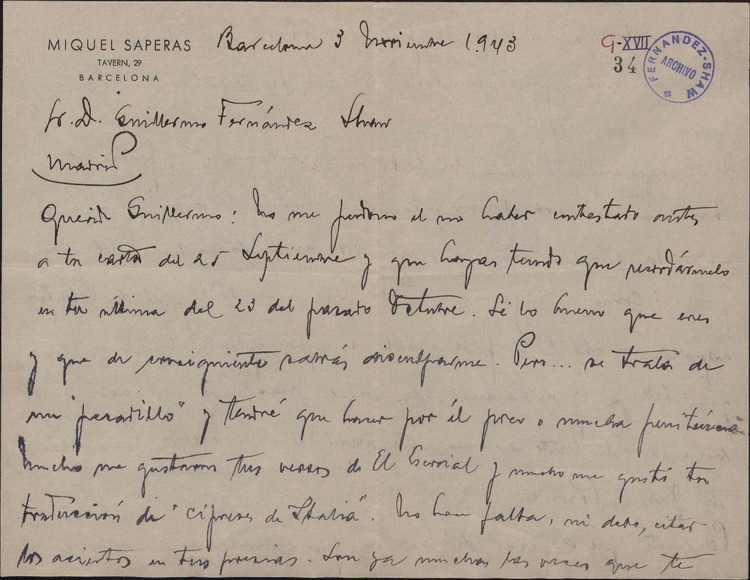 MIQUEL SAPERAS
TAVERN, 29
BARCELONA
Barcelona 3 Noviembre 1943
G-XVII
34
FERNANDEZ-SHAW
ARCHIVO
Sr. D. Guillermo Fernández Shaw
Madrid
Querido Guillermo: No me perdono el no haber contestado antes
a tu carta del 25 Septiembre y que hayas tenido que recordármelo
en tu última del 23 del pasado Octubre. Sé lo bueno que eres
y que de consiguiente sabrás disculparme. Pero... se trata de
un "pecadillo" y tendré que hacer por él poca o mucha penitencia
Mucho me gustaron tus versos de El Escorial y mucho me gustó tu
traducción de "Cipreses de Italia". No hace falta, ni debo, citar
los aciertos en tus poesias. Son ya muchas las veces que te